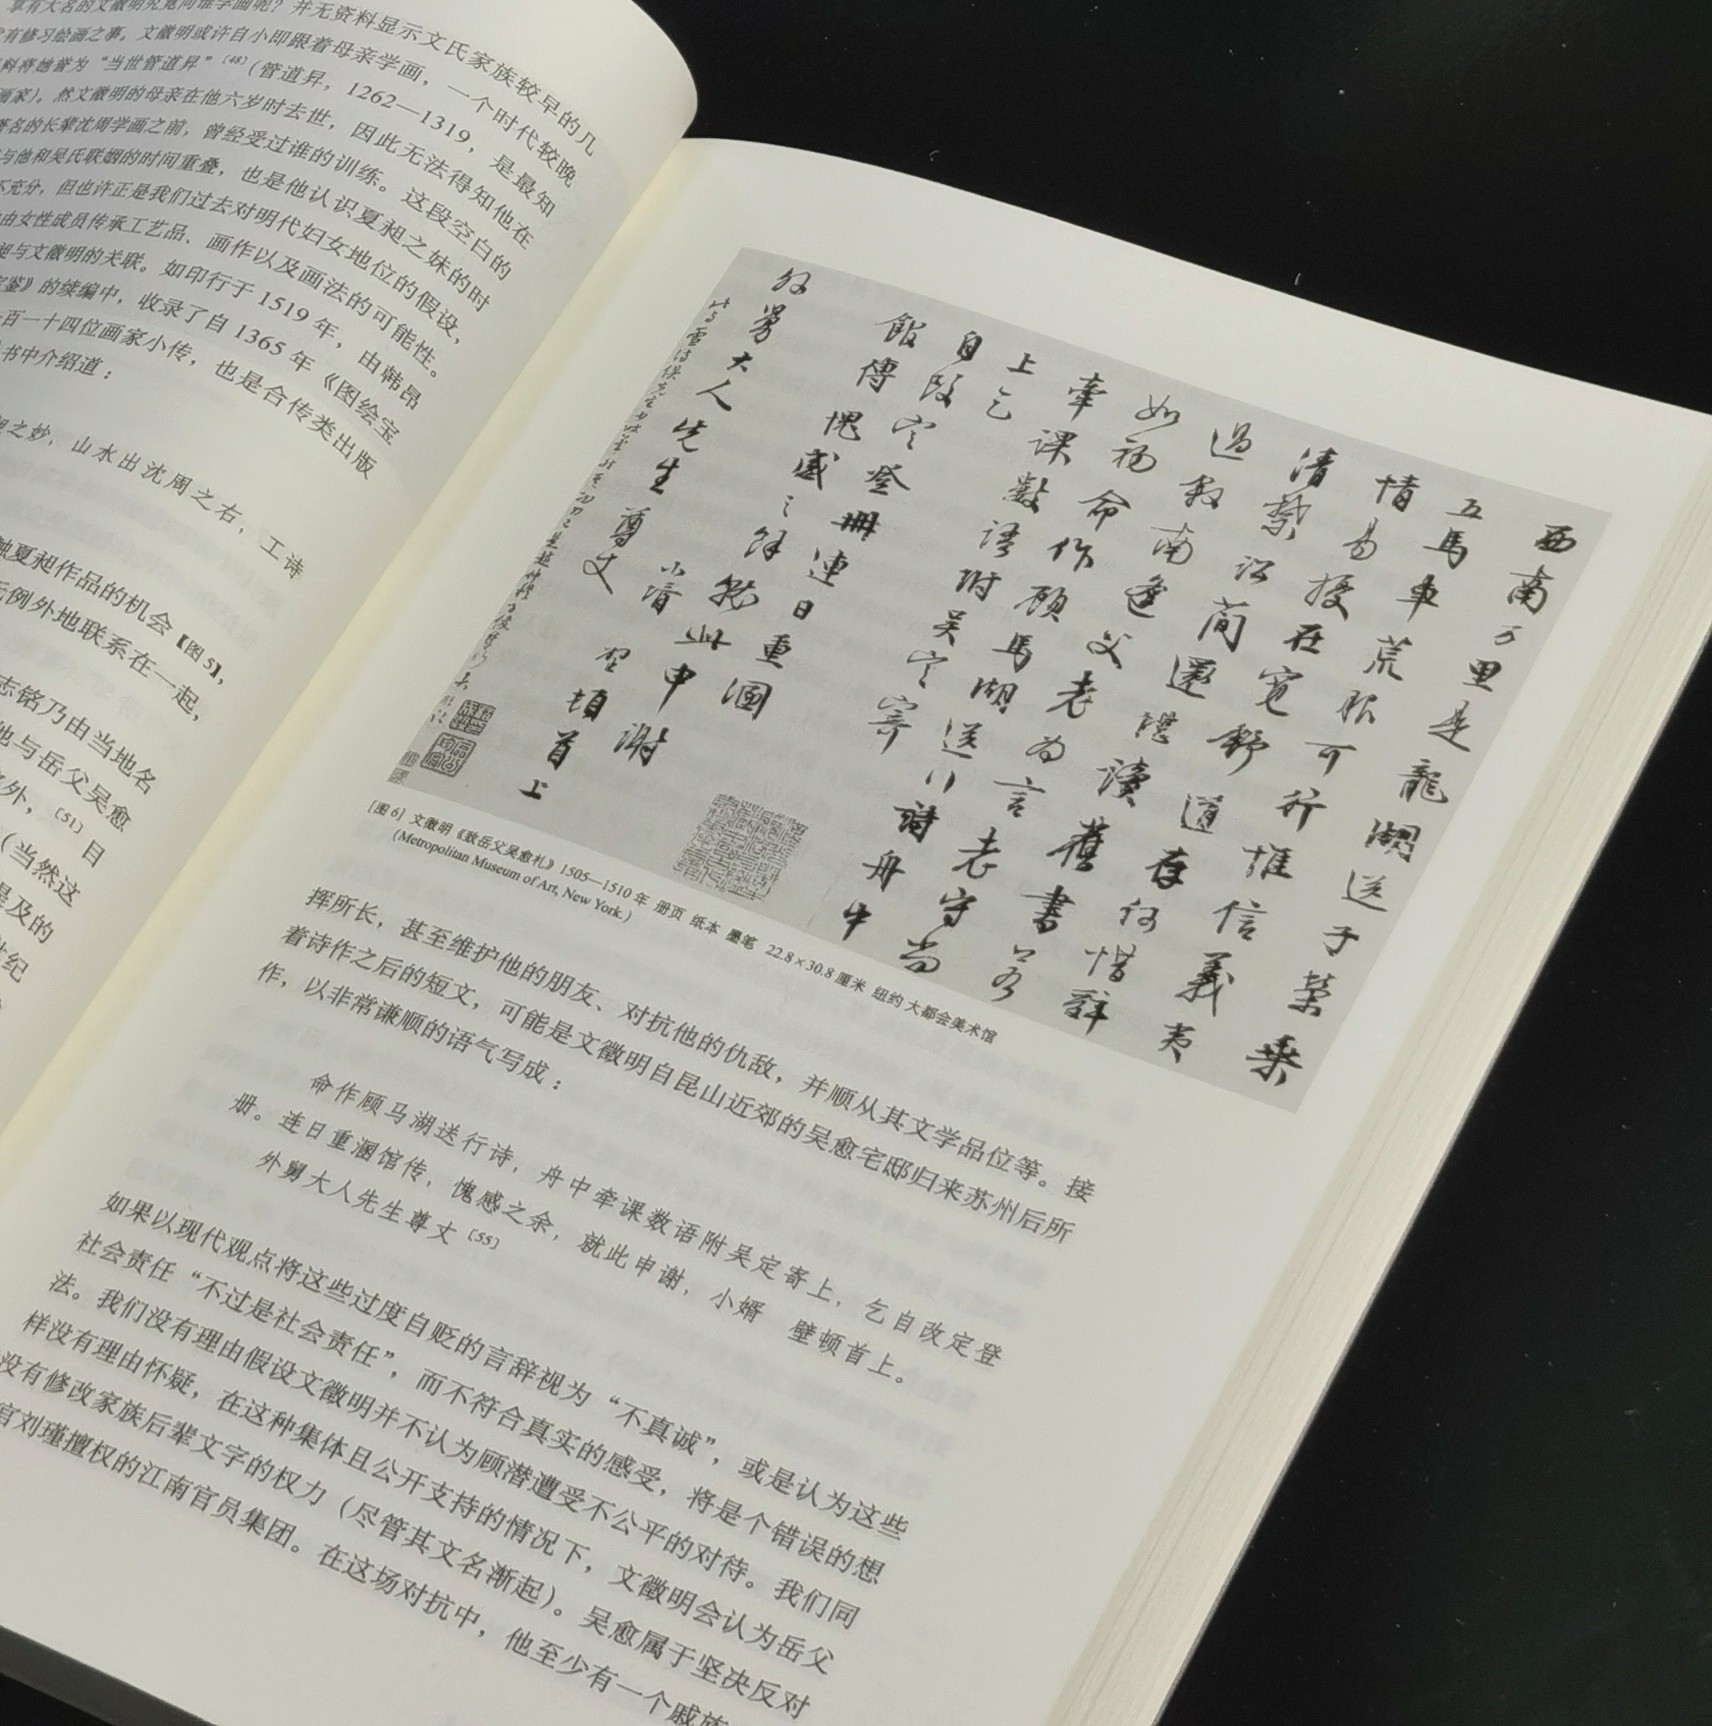 拿有大名的文徵明究竟向谁学画呢？并无资料显示文氏家族较早的几
有修习绘画之事。文徵明或许自小即跟着母亲学画，一个时代较晚
料将她誉为“当世管道昇”〔48〕（管道昇，1262—1319，是最知
画家）。然文徵明的母亲在他六岁时去世，因此无法得知他在
著名的长辈沈周学画之前，曾经受过谁的训练。这段空白的
与他和吴氏联姻的时间重叠，也是他认识夏昶之妹的时
不充分，但也许正是我们过去对明代妇女地位的假设，
由女性成员传承工艺品、画作以及画法的可能性。
昶与文徵明的关联。如印行于1519年，由韩昂
鉴》的续编中，收录了自1365年《图绘宝
一百一十四位画家小传，也是合传类出版
书中介绍道：
之妙，山水出沈周之右，工诗
触夏昶作品的机会【图5】，
无例外地联系在一起，
志铭乃由当地名
地与岳父吴愈
外，〔51〕目
（当然这
是及的
世纪
西南万里是龍湖送子榮乘
五馬車荒服可行惟信義夷
情易擾在寬舒道存何惜辭
清禁沼荷還堪讀舊書若
過敘南逢父老為言老守尚
如初
命作顾馬湖送行詩舟中
牽课數語附吴定寄
上乞
自改定登冊連日重溷
館傳愧感之餘就此申谢
小壻 壁頓首上
外舅大人先生尊丈
[图6] 文徵明《致岳父吴愈札》 1505—1510年 册页 纸本 墨笔 22.8×30.8厘米 纽约大都会美术馆
(Metropolitan Museum of Art, New York.)
挥所长，甚至维护他的朋友、对抗他的仇敌，并顺从其文学品位等。接
着诗作之后的短文，可能是文徵明自昆山近郊的吴愈宅邸归来苏州后所
作，以非常谦顺的语气写成：
命作顾马湖送行诗，舟中牵课数语附吴定寄上，乞自改定登
册。连日重溷馆传，愧感之余，就此申谢，小婿 壁顿首上。
外舅大人先生尊丈〔55〕
如果以现代观点将这些过度自贬的言辞视为“不真诚”，或是认为这些
社会责任“不过是社会责任”，而不符合真实的感受，将是个错误的想
法。我们没有理由假设文徵明并不认为顾潜遭受不公平的对待。我们同
样没有理由怀疑，在这种集体且公开支持的情况下，文徵明会认为岳父
没有修改家族后辈文字的权力（尽管其文名渐起）。吴愈属于坚决反对
官刘瑾擅权的江南官员集团。在这场对抗中，他至少有一个戚族